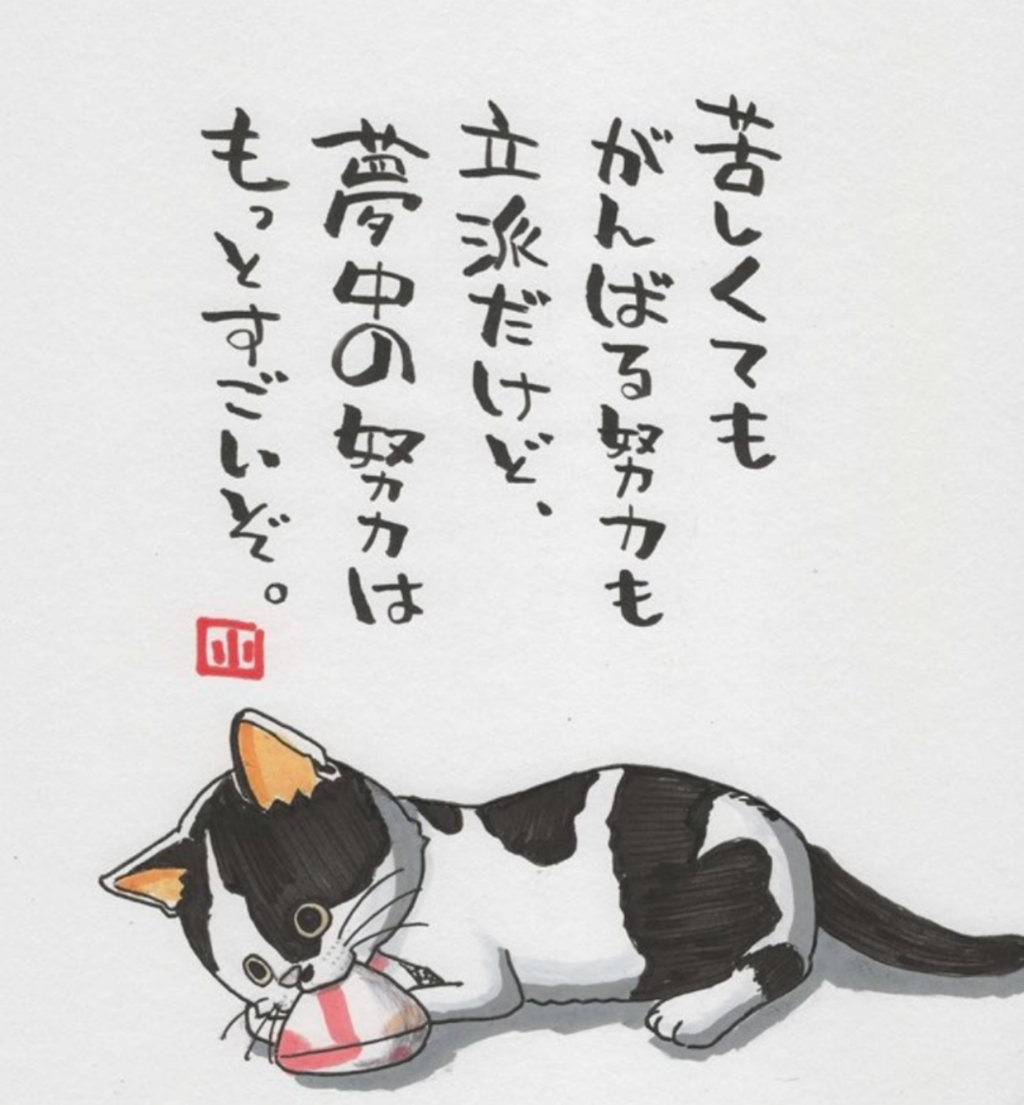 苦しくても
がんばる努力も
立派だけど、
夢中の努力は
もっとすごいぞ。